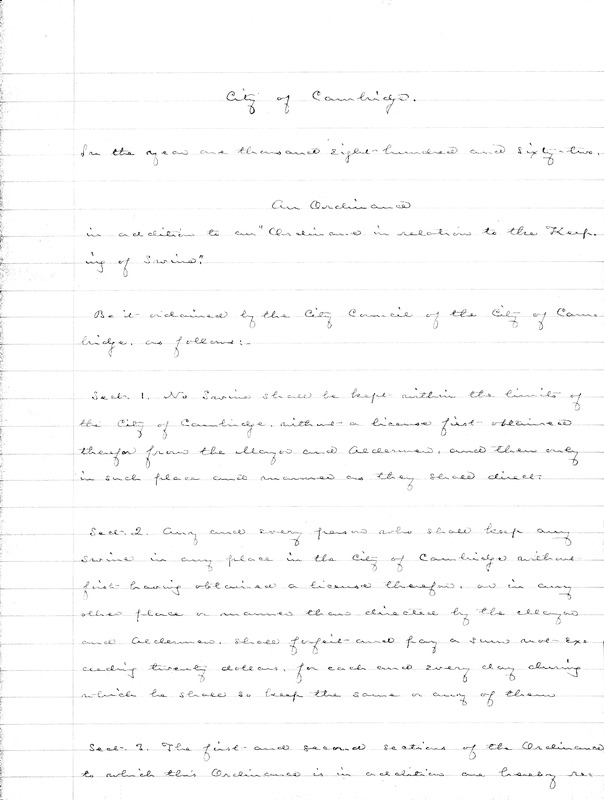 City of Cambridge.
In the year one thousand eight-hundred and sixty-two.
An Ordinance
in addition to an "Ordinance in relation to the Keep-
ing of Swine."
Be it ordained by the City Council of the City of Cam-
bridge, as follows:-
Sect. 1. No Swine shall be kept within the limits of
the City of Cambridge, without a license first obtained
therefor from the Mayor and Aldermen, and then only
in such place and manner as they shall direct.
Sect. 2. Any and every person who shall keep any
swine in any place in the City of Cambridge without
first having obtained a license therefor, or in any
other place or manner than directed by the Mayor
and Aldermen, shall forfeit and pay a sum not ex-
ceeding twenty dollars, for each and every day during
which he shall so keep the same or any of them
Sect. 3. The first and second sections of the Ordinance
to which this Ordinance is in addition are hereby re-